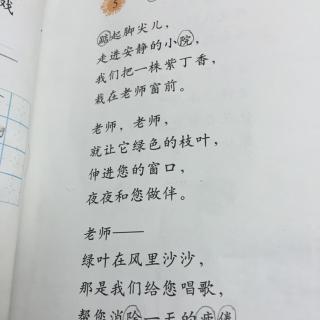 戏
5
踮起脚尖儿，
走进安静的小院，
我们把一株紫丁香，
栽在老师窗前。
老师，老师，
就让它绿色的枝叶，
伸进您的窗口，
夜夜和您做伴。
老师——
绿叶在风里沙沙，
那是我们给您唱歌，
帮您消除一天的疲倦